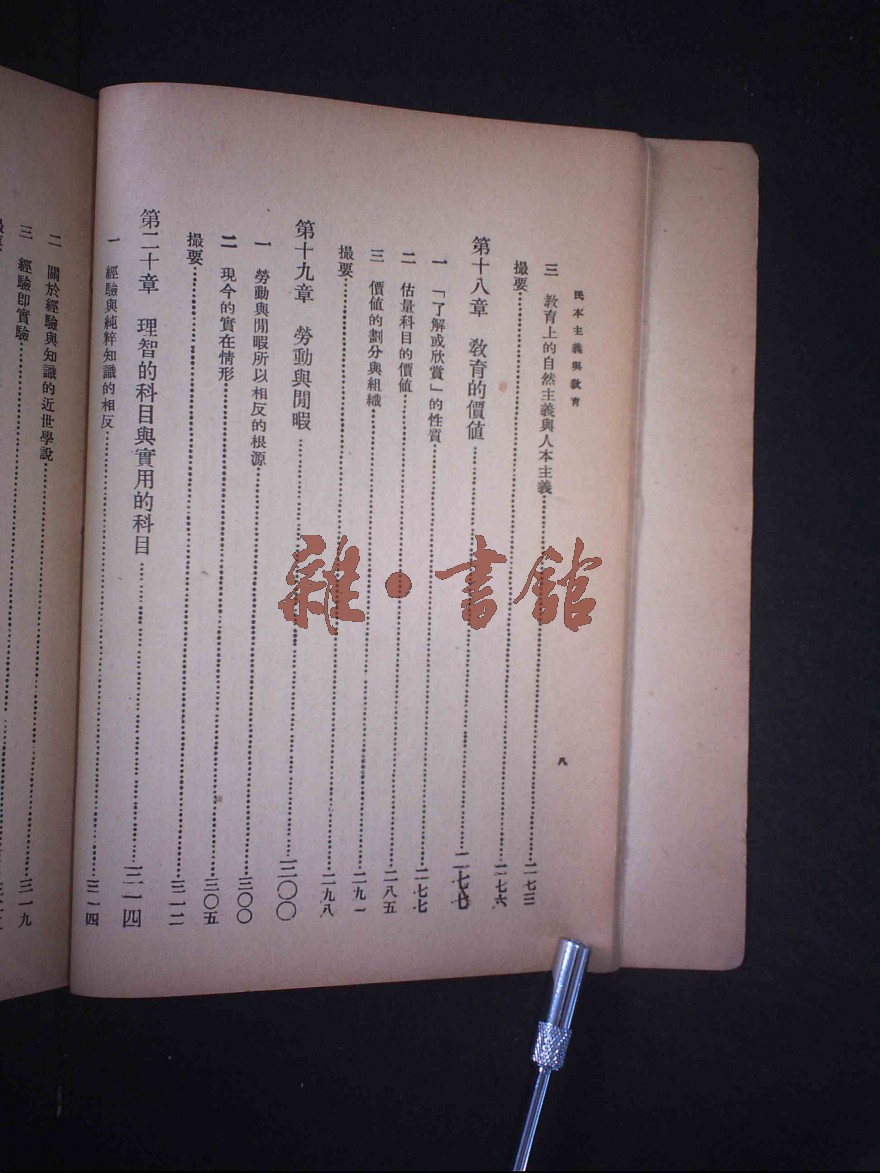 民本主義與教育
八
三 教育上的自然主義與人本主義……二七三
撮要……二七六
第十八章 教育的價値……二七七
一 「了解或欣賞」的性質……二七七
二 估量科目的價値……二八五
三 價値的劃分與組織……二九一
撮要……二九八
第十九章 勞動與閒暇……三〇〇
一 勞動與閒暇所以相反的根源……三〇〇
二 現今的實在情形……三〇五
撮要……三一二
第二十章 理智的科目與實用的科目……三一四
一 經驗與純粹知識的相反……三一四
二 關於經驗與知識的近世學說……三一九
三 經驗卽實驗……
撮要
雜·書館